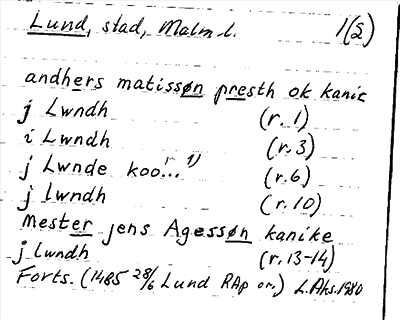 Lund, stad, Malm l. 1(2)
andhers matissøn presth ok kanic
j Lwndh (r. 1)
i Lwndh (r. 3)
j Lwnde koo...r 1) (r. 6)
j lwndh (r. 10)
Mester jens Agessøn kanike
j lwndh (r. 13-14)
Forts. (1485 28/6 Lund RAp or.) L.Aks. 1980